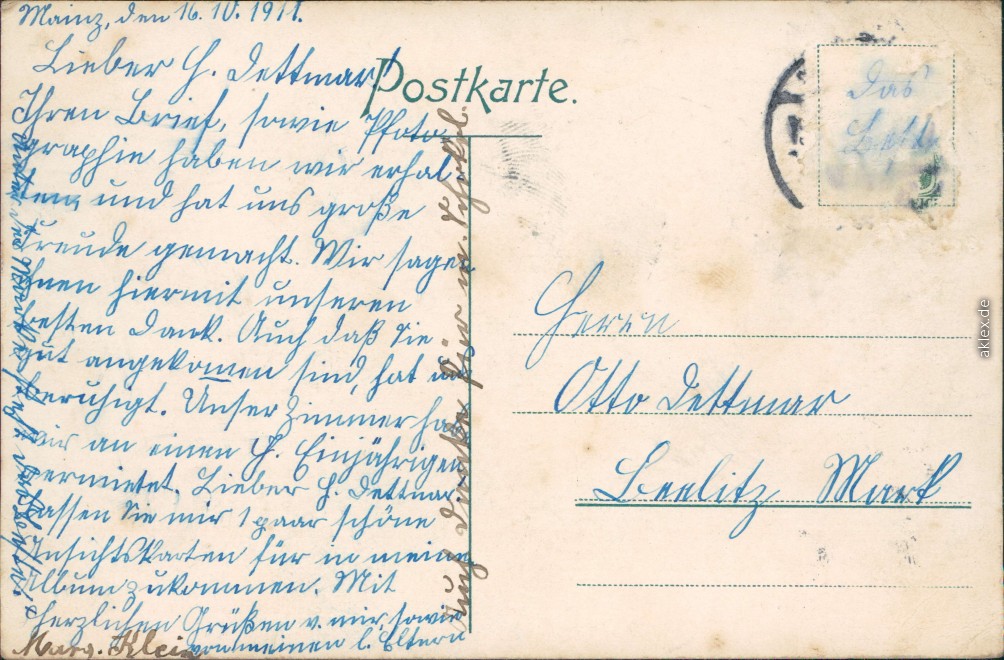 Mainz, den 16. 10. 1911.
Lieber H. Dettmar!
Ihren Brief, sowie Photo
graphie haben wir erhal
ten, und hat uns große
Freude gemacht. Wir sagen
Ihnen hiermit unseren
besten Dank. Auch daß Sie
gut angekommen sind, hat uns
beruhigt. Unser Zimmer ha
wir an einen H. Einjährigen
vermietet. Lieber H. Dettmar
lassen Sie mir 1 paar schöne
Ansichtskarten für in meine
Album zukommen. Mit
herzlichen Grüßen v. mir, sowie
von meinen l. Eltern
Marg. Klein
Auch danke für
Postkarte.
Das
Herrn
Otto Dettmar
Beelitz Mark
aklex.de